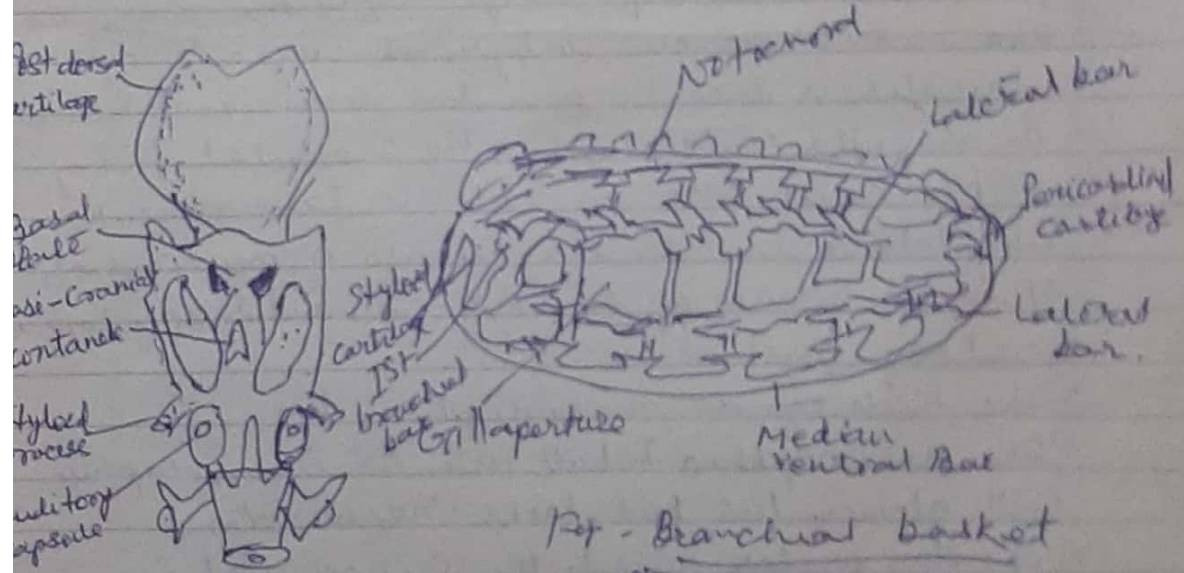 est dorsal
artilage
Basal
Plate
asi-Cranial
fontanele
Styloid
process
uditory
apsule
Notochord
Lateral bar
Pericardial
cartilage
Lateral
bar.
Styloid
cartilage
Ist
branchial
bar
Gill aperture
Median
ventral Bar
Fig - Branchial basket